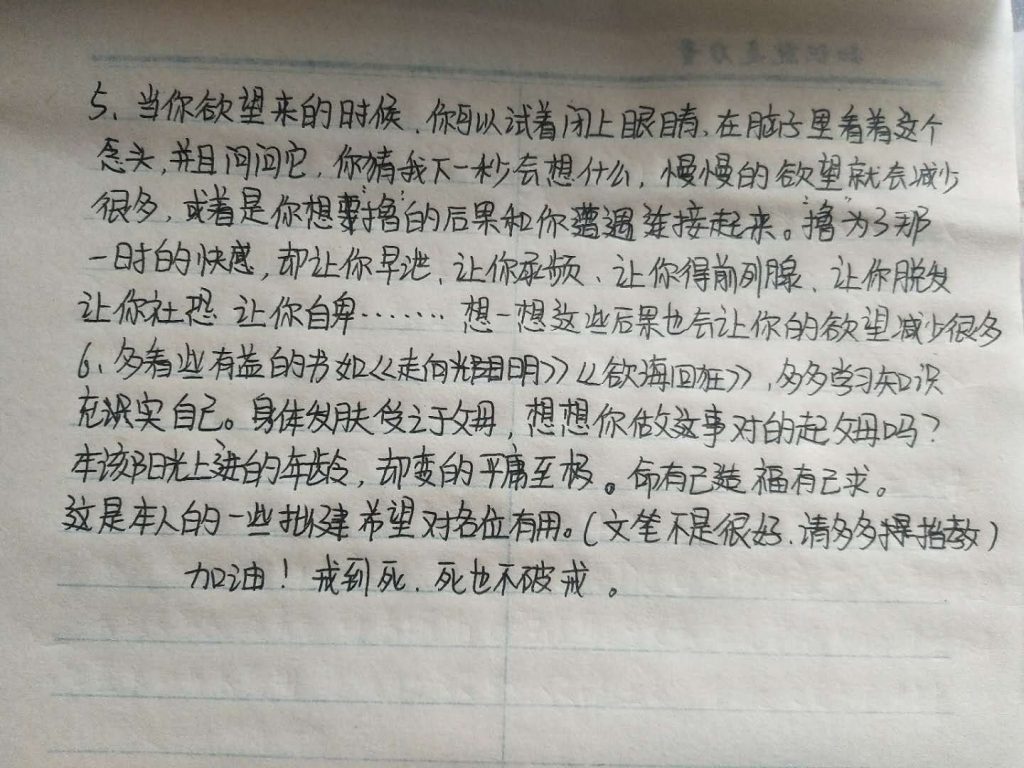 5、当你欲望来的时候，你可以试着闭上眼睛，在脑子里看着这个
念头，并且问问它，你猜我下一秒会想什么，慢慢的欲望就会减少
很多，或着是你想要"撸"的后果和你遭遇连接起来。"撸"为了那
一时的快感，却让你早泄，让你尿频、让你得前列腺、让你脱发
让你社恐 让你自卑……… 想一想这些后果也会让你的欲望减少很多
6、多看些有益的书如《走向光明》《欲海回狂》，多多学习知识
充实自己。身体发肤受之于父母，想想你做这事对的起父母吗？
本该阳光上进的年龄，却变的平庸至极。命有己造 福有己求。
这是本人的一些拙建 希望对各位有用。（文笔不是很好，请多多指教）
加油！戒到死．死也不破戒。